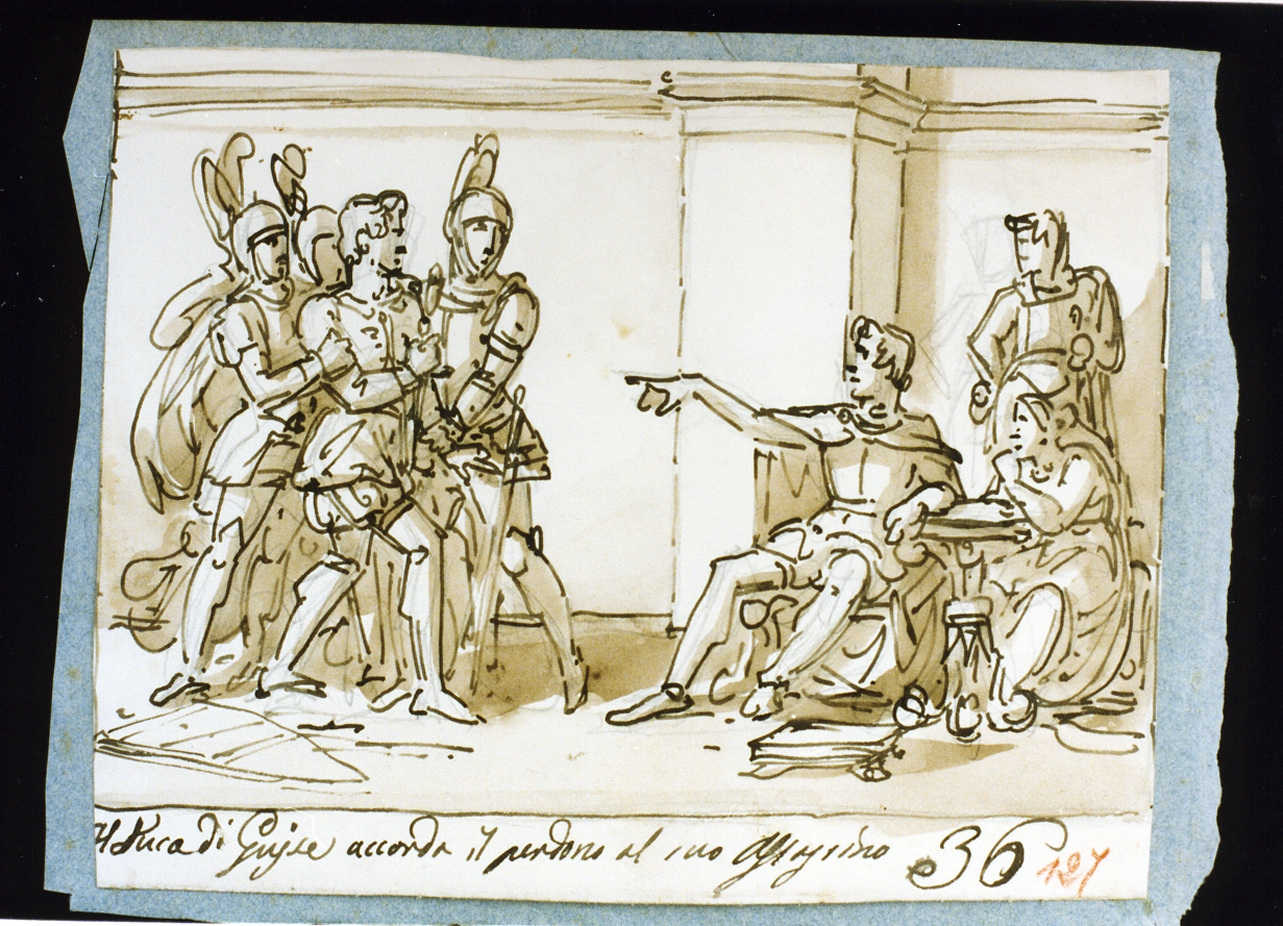 Il Duca di Guise accorda il perdono al suo Assassino 36 127